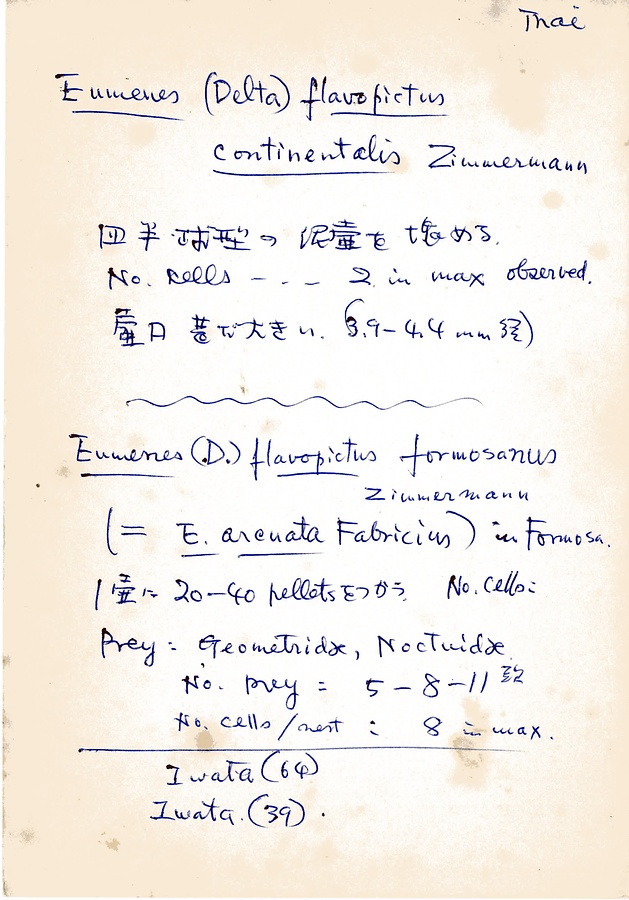 Thai
Eumenes (Delta) flavopictus
continentalis Zimmermann
四半球型の泥壷を埋める.
No. cells - - - 2 in max observed.
壷口 甚だ大きい. (3.9-4.4 mm 径)
Eumenes (D.) flavopictus formosanus
Zimmermann
(= E. arcuata Fabricius) in Formosa.
1壷に 20-40 pelletsをつかう. No. cells:
Prey: Geometridæ, Noctuidæ.
No. prey = 5-8-11
No. cells/nest : 8 in max.
Iwata (64)
Iwata. (39).